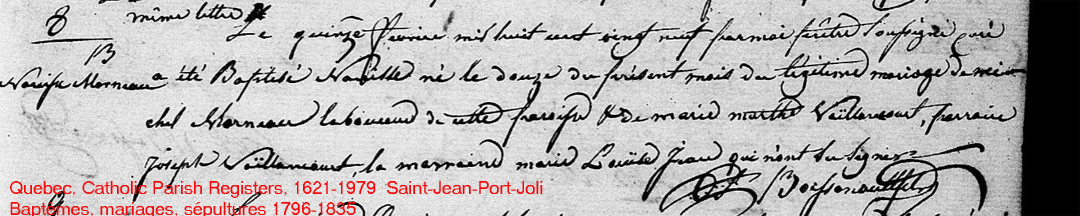 même lettre
8
B
Narcisse Morneau
Le quinze Fevrier mil huit cent vingt neuf par moi prêtre soussigné curé
a été Baptisé Narcisse né le douze du présent mois du légitime mariage de mi
chel Morneau laboureur de cette paroisse & de marie marthe Vaillancourt, parrain
joseph Vaillancourt, la marraine marie Louise Jean qui n'ont su signer
Boissonnault ptre
Quebec, Catholic Parish Registers, 1621-1979 Saint-Jean-Port-Joli
Baptêmes, mariages, sépultures 1796-1835